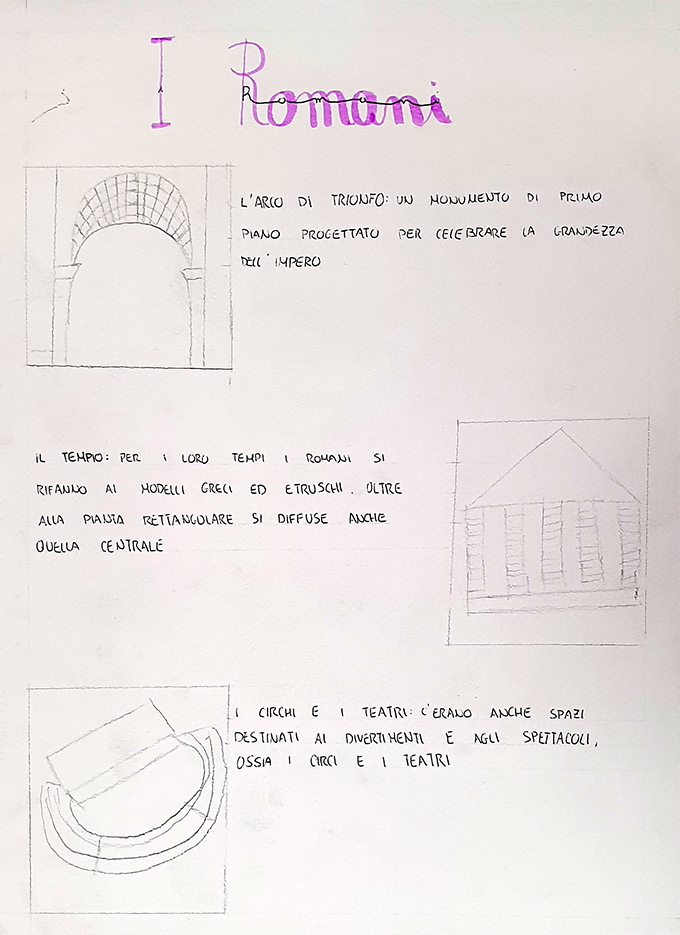 I Romani
L'ARCO DI TRIONFO: UN MONUMENTO DI PRIMO
PIANO PROGETTATO PER CELEBRARE LA GRANDEZZA
DELL'IMPERO
IL TEMPIO: PER I LORO TEMPI I ROMANI SI
RIFANNO AI MODELLI GRECI ED ETRUSCHI. OLTRE
ALLA PIANTA RETTANGOLARE SI DIFFUSE ANCHE
QUELLA CENTRALE
I CIRCHI E I TEATRI: C'ERANO ANCHE SPAZI
DESTINATI AI DIVERTIMENTI E AGLI SPETTACOLI,
OSSIA I CIRCI E I TEATRI